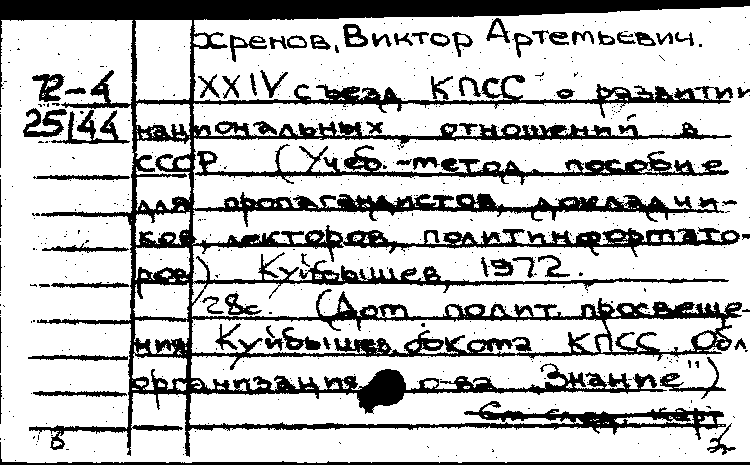 Хренов, Виктор Артемьевич.
72-4 XXIV съезд КПСС о развитии
25144 национальных отношений в
СССР. (Учеб.-метод. пособие
для пропагандистов, докладчи-
ков, лекторов, политинформато-
ров). Куйбышев, 1972.
28с. (Дом полит. просвеще-
ния Куйбышев. обкома КПСС. Обл
организация о-ва "Знание")
См след. карт